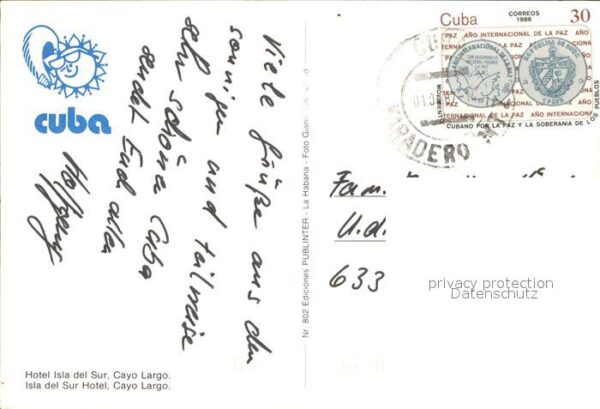 cuba
Viele Grüße aus dem
sonnigen und teilweise
sehr schönen Cuba
sendet Euch allen
Wolfgang
Hotel Isla del Sur, Cayo Largo.
Isla del Sur Hotel, Cayo Largo.
Nr. 802 Ediciones PUBLINTER - La Habana - Foto Gianni
Cuba CORREOS 1986 30
PAZ AÑO INTERNACIONAL DE LA PAZ AÑO
MOVIMIENTO CUBANO POR LA PAZ Y LA SOBERANIA DE LOS PUEBLOS
REPUBLICA DE CUBA
VARADERO
Fam.
U.d.
633
privacy protection
Datenschutz